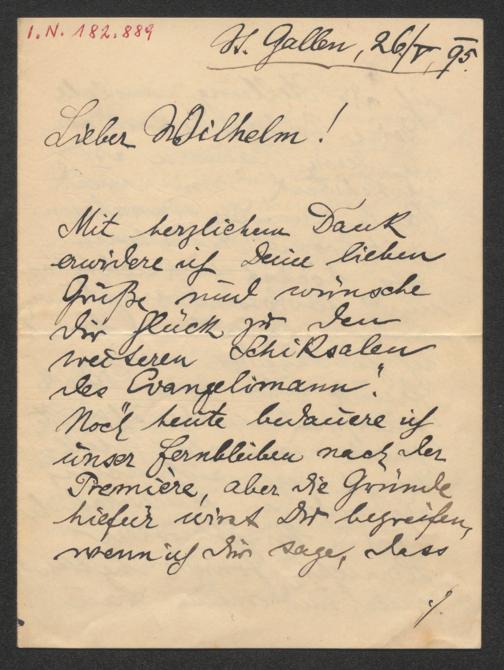 I.N. 182.889
St. Gallen, 26/V, 95.
Lieber Wilhelm!
Mit herzlichem Dank
erwidere ich Deine lieben
Grüße und wünsche
Dir Glück zu den
weiteren Schiksalen
des Evangelimann".
Noch heute bedauere ich
unser Fernbleiben nach der
Première, aber die Gründe
hiefür wirst Du begreifen,
wenn ich Dir sage, dass
./.